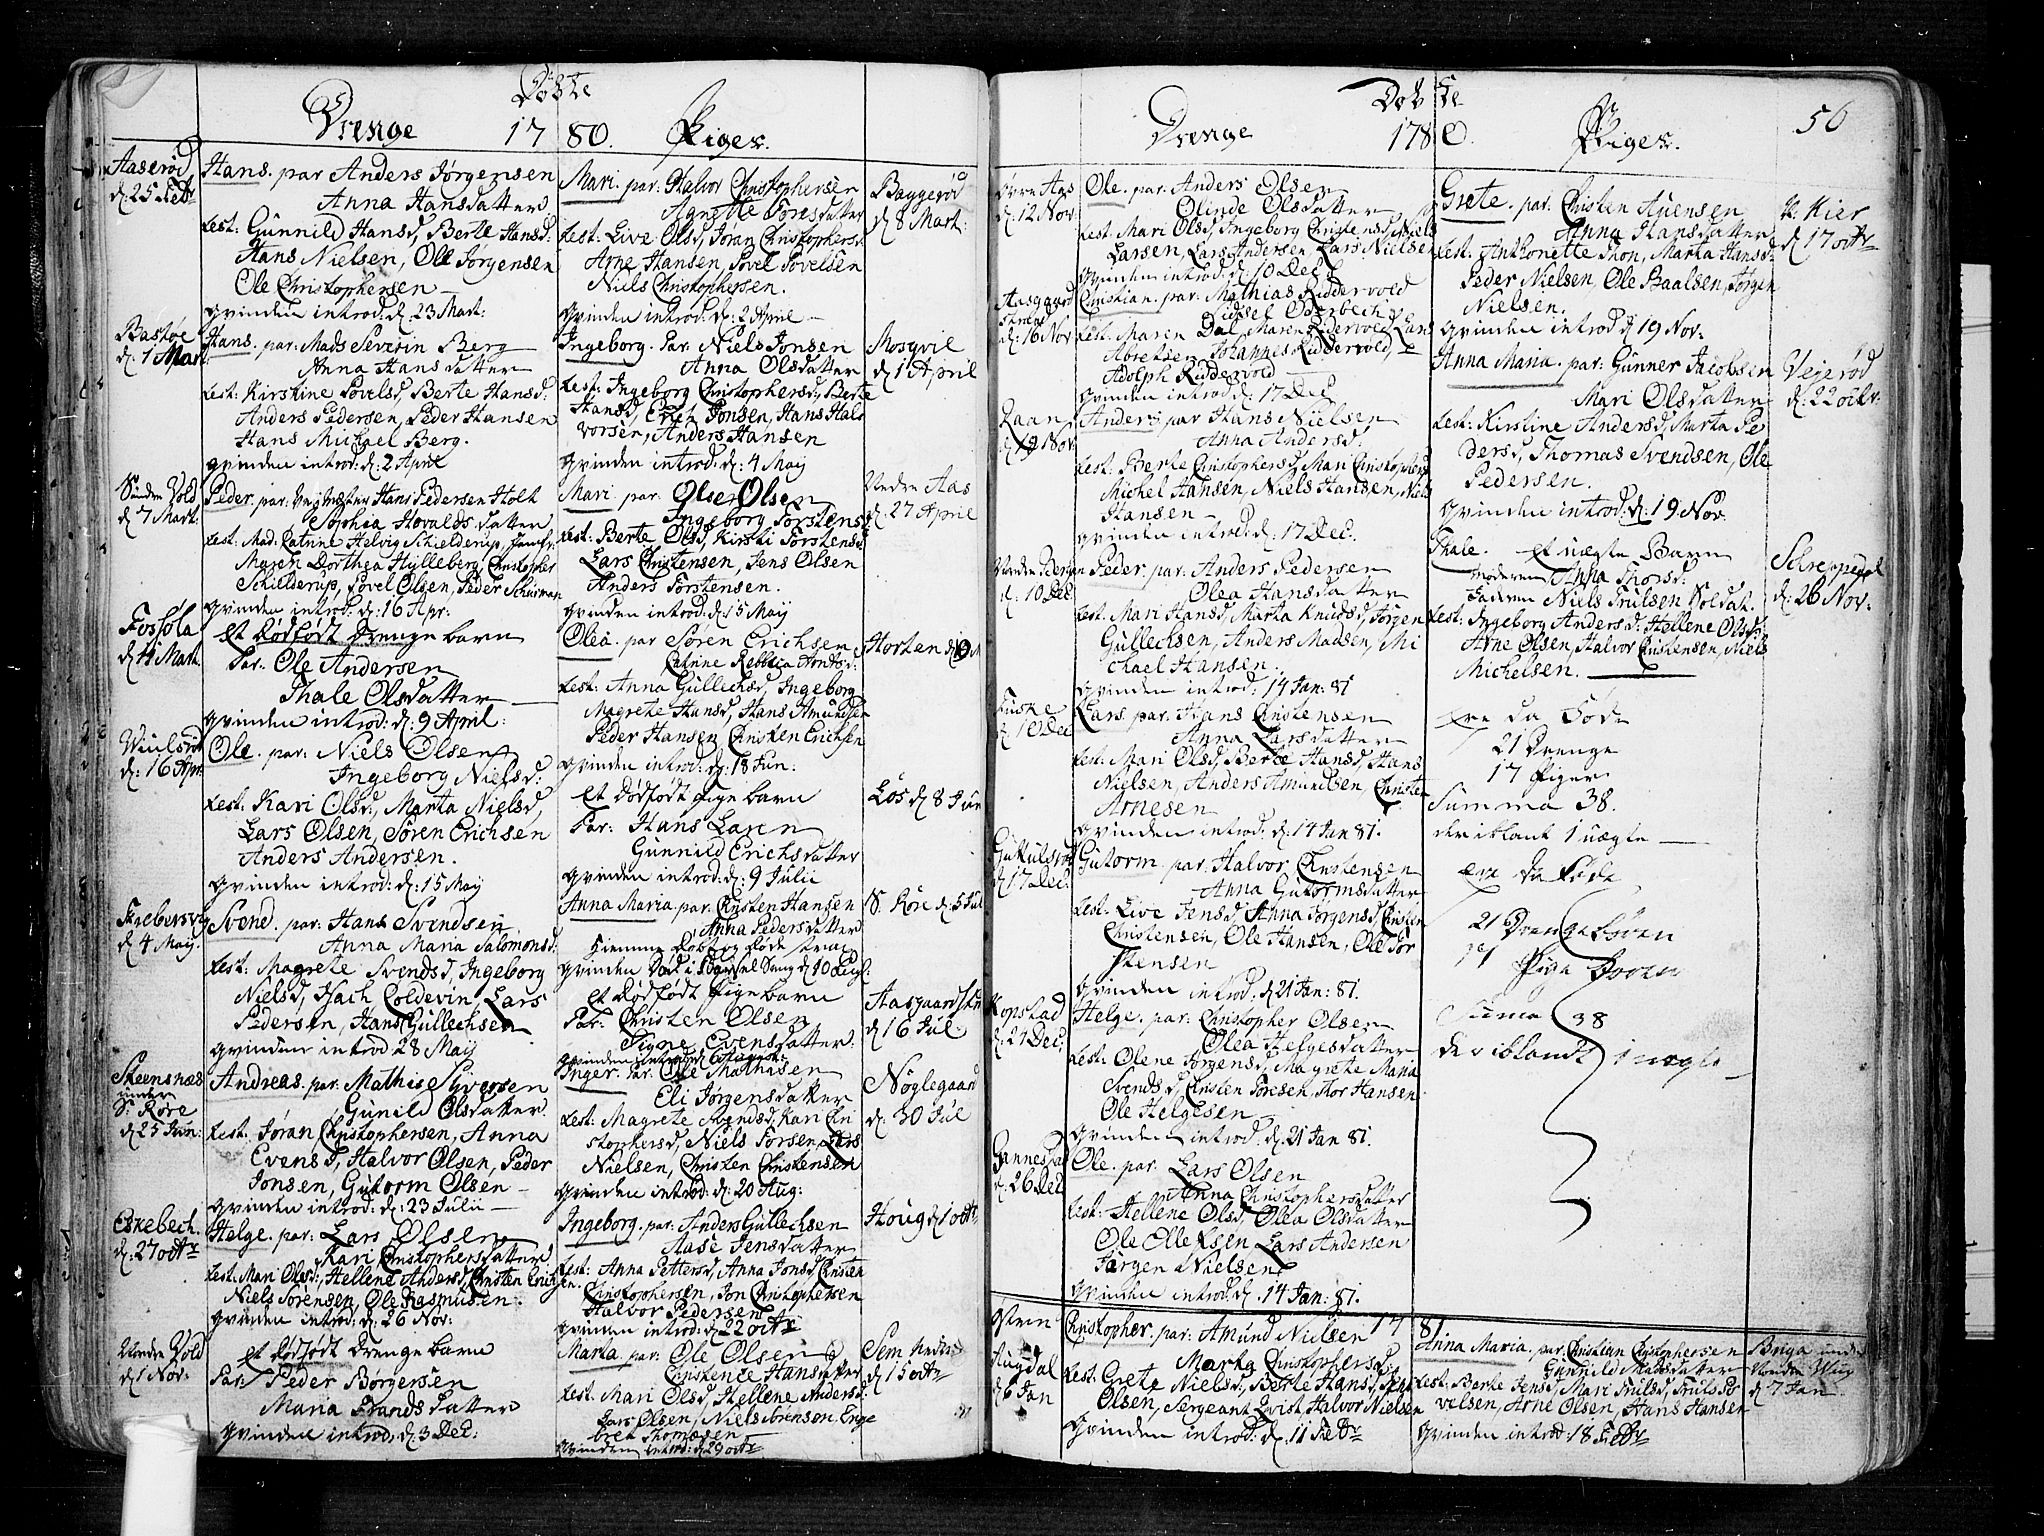 Döbte
Drenge 1780. Piger.
Aaserød
d: 25 Febr
Hans. par Anders Jørgensen
Anna Hansdatter
test: Gunnild Hansd, Berte Hansd:
Hans Nielsen, Ole Jørgensen
Ole Christophersen
qvinden introd: d: 23 Mart:
Bastøe
d: 1 Mart
Hans. par: Mads Severin Berg
Anna Hansdatter
test: Kirstine Povelsd, Berte Hansd:
Anders Pedersen, Peder Hansen
Hans Michael Berg.
qvinden introd: d: 2 April
Søndre Vold
d 7 Mart:
Peder. par: Hans Pedersen Holt
Sophia Hovaldsdatter
test: Mad: Catrine Helvig Schielderup, Jomfr:
Maren Dorthea Hylleberg, Christopher
Schielderup, Povel Olsen, Peder
qvinden introd: d: 16 Apr:
Fossøla
d 11 Mart
et dødfødt Drenge barn
Par: Ole Andersen
Thale Olsdatter
qvinden introd: d: 9 April:
d: 16 Apr:
Ole. par: Niels Olsen
Ingeborg Nielsd:
test: Kari Olsd, Marta Nielsd,
Lars Olsen, Søren Erichsen
Anders Andersen.
qvinden introd: d: 15 Maij
d 4 Maij.
Svend. par: Hans Svendsen
Anna Maria Salomonsd:
test: Magrete Svendsd, Ingeborg
Nielsd, Isach Coldevin, Lars
Pedersen, Hans Gullechsen
qvinden introd 28 Maij
Steensnæs
under
S. Røre
d 25 Jun:
Andreas. par: Mathis Syversen
Gunild Olsdatter
test: Jøran Christophersen, Anna
Evensd, Halvor Olsen, Peder
Jonsen, Gutorm Olsen
qvinden introd: d: 23 Julii
Eskebech
d: 27 octr
Helge. par: Lars Olsen
Kari Christophersdatter
test: Mari Olsd:, Hellene Andersd, Christen Erichsen
Niels Sørensen, Ole Rasmusen.
qvinden introd: d: 26 Nov:
Vestre Vold
d 1 Nov:
et dødfødt Drenge barn
Par: Peder Børgersen
Maria Frandsdatter
qvinden introd: d: 3 Dec:
Mari. par: Halvor Christophersen
Agnette Toresdatter
test: Live Olsd, Jøran Christophersd
Arne Hansen, Povel Povelsen
Niels Christophersen.
qvinden introd: d: 2 April
Baggerød
d 8 Mart:
Ingeborg. Par: Niels Jonsen
Anna Olsdatter
test: Ingeborg Christophersd, Berte
Hansd, Erich Jonsen, Hans Hal
vorsen, Anders Hansen
qvinden introd: d: 4 Maij
Mosqvil
d 1 April
Mari par: Olse Olsen
Ingeborg Torstensd
test: Berte Olsd, Kirsti Torstensd
Lars Christensen, Jens Olsen
Anders Torstensen.
qvinden introd: d: 15 Maij
Nedre Aas
d: 27 April
Olea. par Søren Erichsen
Catrine Rebecca
test: Anna Gullechsd, Ingeborg
Magrete Hansd, Hans Amundsen
Peder Hansen, Christen Erichsen
qvinden introd: d: 18 Jun:
Horten
et dødfødt Pige barn
Par: Hans Laren
Gunnild Erichsdatter
qvinden introd: d: 9 Julii
Løs d 8 Jun
Anna Maria par: Christen Hansen
Anna Pedersdatter
Hiemme døbt og døde strax
qvinden død i Barsel Seng d 10
S. Røre d 5 Jul
et dødfødt Pige barn
Par: Christen Olsen
Signe Evensdatter.
qvinden introd: d 6 August:
Aasgaard
d 16 Jul:
Inger. par: Ole Mathisen
Eli Jørgensdatter
test: Magrete Svendsd, Kari Chri
stophersd, Niels Torsen, Lars
Nielsen, Christen Christensen
qvinden introd: d: 20 Aug:
Nøglegaard
d: 30 Jul
Ingeborg. par: Anders Gullechsen
Aase Jensdatter
test: Anna Pettersd, Anna Jonsd, Christen
Christophersen, Jon Christophersen
Halvor Pedersen
qvinden introd: d 22 octr
Houg d 1 octr
Marta. par: Ole Olsen
Christence Hansdatter
test: Mari Olsd, Hellene Andersd:
Lars Olsen, Niels Sørensen Enge
bret Thomæsen
qvinden introd: d 29 octr
Sem
d 15 octr
Dobte
Drenge 1780. Piger. 56
Øvre Aas
d: 12 Nov.
Ole. par: Anders Olsen
Olinde Olsdatter
test: Mari Olsd, Ingeborg Christensd, Niels
Larsen, Lars Andersen, Lars Nielsen
qvinden introd: d: 10 Dec
Aasgaard
d: 16 Nov
Christian. par: Mathias Riddervold
Sidsel Odderbech
test: Maren Dal, Maren Riddervold, Hans
Abretsen, Johannes Riddervold,
Adolph Riddervold
qvinden introd: d: 17 Dec
Raan
d 19 Nov
Anders. par Hans Nielsen
Anna Andersd:
test: Berte Christophersd, Mari Christophersd
Michel Hansen, Niels Hansen, Niels
Hansen
qvinden introd: d: 17 Dec.
d: 10 Dec
Peder. par: Anders Pedersen
Olea Hansdatter
test: Mari Hansd, Marta Knudsd, Jørgen
Gullechsen, Anders Madsen, Mi
chael Hansen.
qvinden introd: 14 Jan: 81
d: 10 Dec
Lars. par: Hans Christensen
Anna Larsdatter
test: Mari Olsd, Berte Hansd, Hans
Nielsen, Anders Amundsen, Christen
Arnesen
qvinden introd: d: 14 Jan 81.
d 17 Dec:
Gutorm. par: Halvor Christensen
Anna Gutormsdatter
test: Live Jensd, Anna Jørgensd, Christen
Christensen, Ole Hansen, Ole Tor
stensen
qvinden introd: d 21 Jan: 81.
Kopstad
d: 21 Dec:
Helge. par: Christopher Olsen
Olea Helgesdatter
test: Olene Jørgensd, Magrete Maria
Svendsd, Christen Toresen, Thor Hansen
Ole Helgesen
qvinden introd: d: 21 Jan 81.
Gannestad
d: 26 Dec
Ole. par: Lars Olsen
Anna Christophersdatter
test: Hellene Olsd, Olea Olsdatter
Ole Ollefsen Lars Andersen
Jørgen Nielsen
qvinden introd: d. 14 Jan: 81.
Grete. par: Christen Auensen
Anna Hansdatter
test: Anthonette Thon, Marta Hansd:
Peder Nielsen, Ole Paalsen, Jørgen
Nielsen.
qvinden introd d 19 Nov.
Kier
d 17 octr
Anna Maria. par: Gunner Jacobsen
Mari Olsdatter
test: Kirstine Andersd, Marta Pe
dersd, Thomas Svendsen, Ole
Pedersen.
qvinden introd: d: 19 Nov.
Vejerød
d: 22 octr.
Thale. et uægte Barn
moderen Anna Thorsd:
Faderen Niels Trulsen Soldat.
test: Ingeborg Andersd: Hellene Olsd:
Arne Olsen, Halvor Christensen, Niels
Michelsen.
Schreppedal
d: 26 Nov:
ere da Fødte
21 Drenge
17 Piger
Summa 38.
der iblant 1 uægte
ere da fødte
21 Drenge børen
17 Pige børen
Suma 38
der iblandt 1 uægte
1781
d 6 Jan
Christopher. par: Amund Nielsen
Marta Christophersd:
test: Grete Nielsd, Berte Hansd,
Olsen, Sergeant Qvist, Halvor Nielsen
qvinden introd: d: 11 Febr
Anna Maria. par: Christian Christophersen
Gunnild Madsdatter
test: Berte Jensd, Mari Trulsd, Truls Po
velsen, Arne Olsen, Hans Hansen
qvinden introd: 18 Febr
d 7 Jan